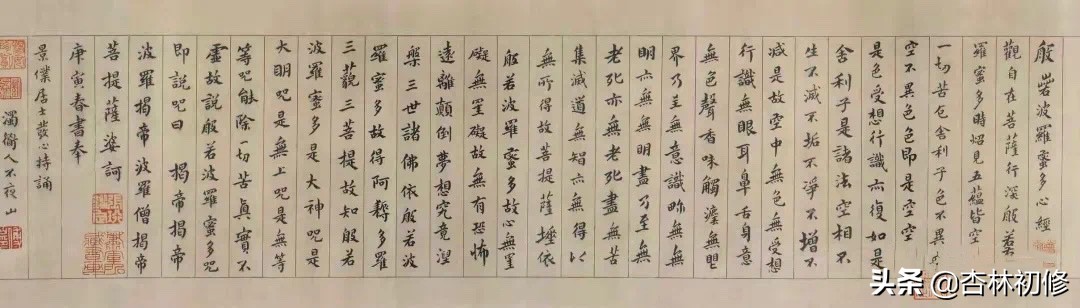 般若波羅蜜多心經
觀自在菩薩行深般若
羅蜜多時照見五蘊皆空
一切苦厄舍利子色不異
空不異色色即是空空
是色受想行識亦復如是
舍利子是諸法空相不
生不滅不垢不淨不增不
減是故空中無色無受想
行識無眼耳鼻舌身意
無色聲香味觸法無眼
界乃至無意識界無無
明亦無無明盡乃至無
老死亦無老死盡無苦
集滅道無智亦無得以
無所得故菩提薩埵依
般若波羅蜜多故心無罣
礙無罣礙故無有恐怖
遠離顛倒夢想究竟涅
槃三世諸佛依般若波
羅蜜多故得阿耨多羅
三藐三菩提故知般若
波羅蜜多是大神咒是
大明咒是無上咒是無等
等咒能除一切苦真實不
虛故說般若波羅蜜多咒
即說咒曰 揭帝揭帝
波羅揭帝 波羅僧揭帝
菩提薩婆訶
庚寅春書奉
景僕居士發心持誦
人不夜山
头条 @杏林初修